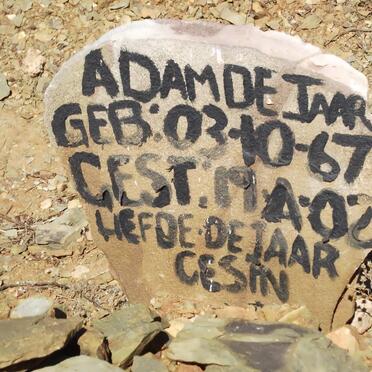 ADAM DE JAAR
GEB: 03-10-67
GEST: M:A:02
LIEFDE:DE JAAR
GESIN